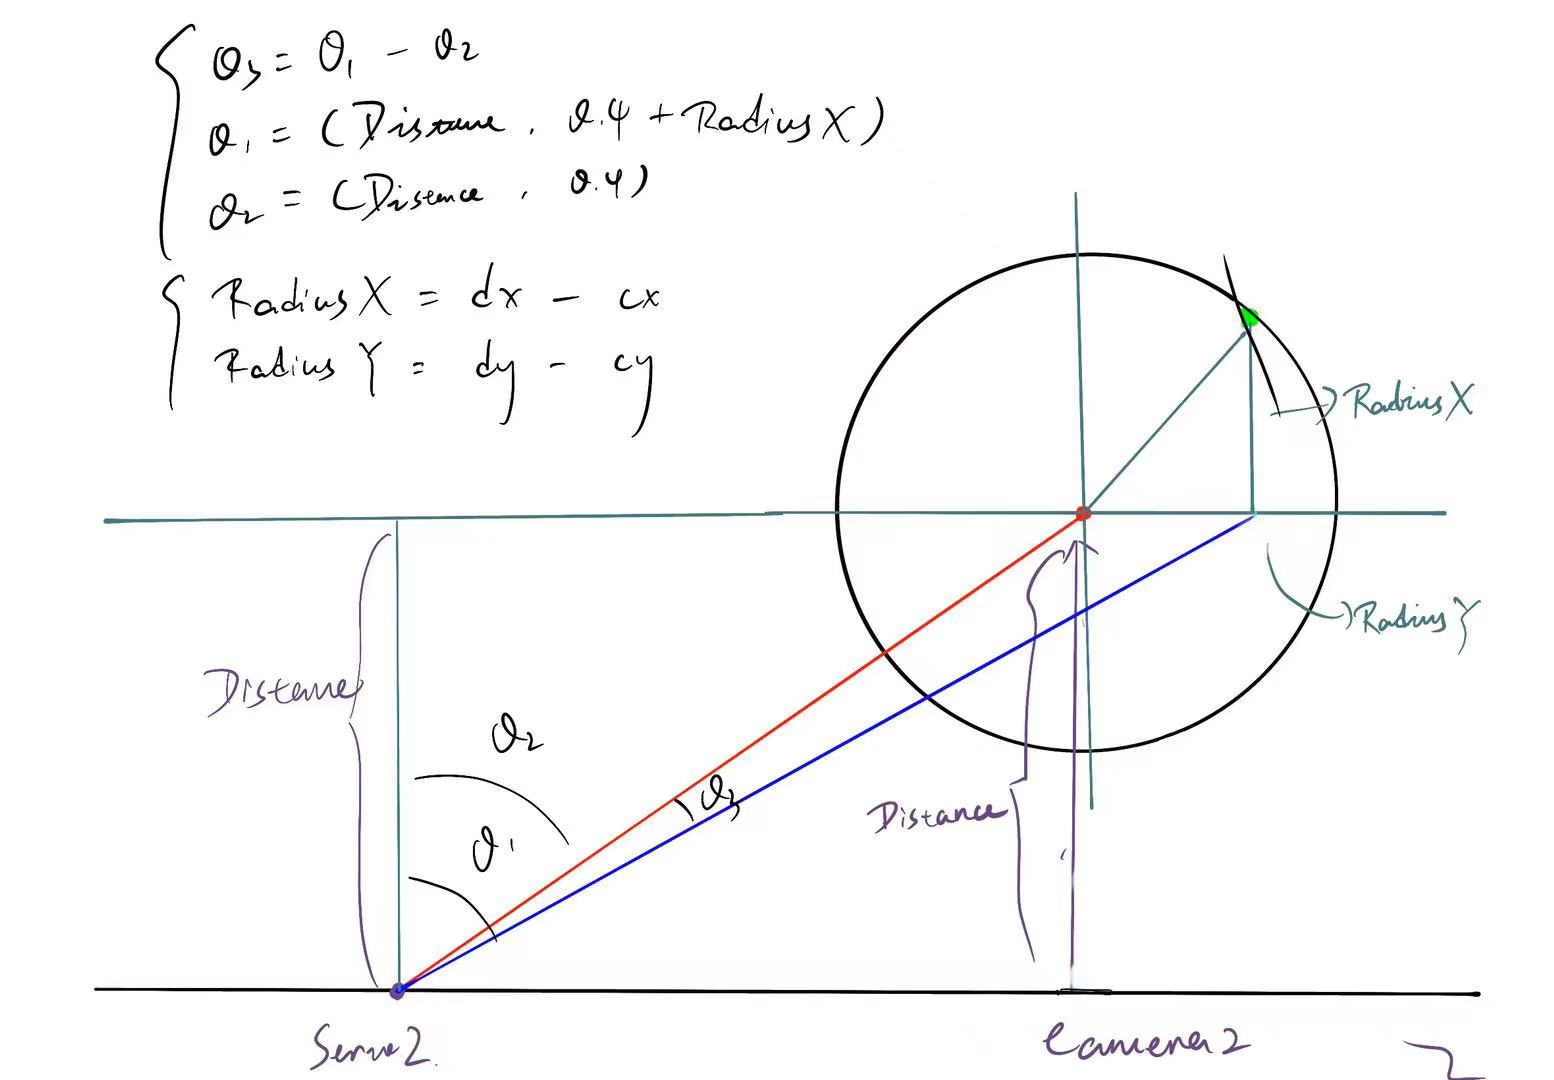 θ3 = θ1 - θ2
θ1 = (Distance, 0.4 + RadiusX)
θ2 = (Distance, 0.4)
RadiusX = dx - cx
RadiusY = dy - cy
RadiusX
RadiusY
Distance
θ2
θ3
Distance
θ1
Servo2
Camera2